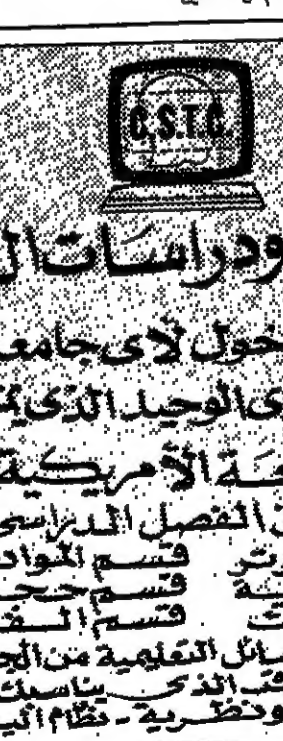 C.S.T.C.
ودراسات ال
خول لأى جامع
ى الوحيد الذى ي
ة الأمريكية
ن الفصل الدراسى
وتر قسم المواد
ية قسم
ت قسم ال
ائل التعليمية من ال
الذى يناسبك
ونظرية - نظام الي